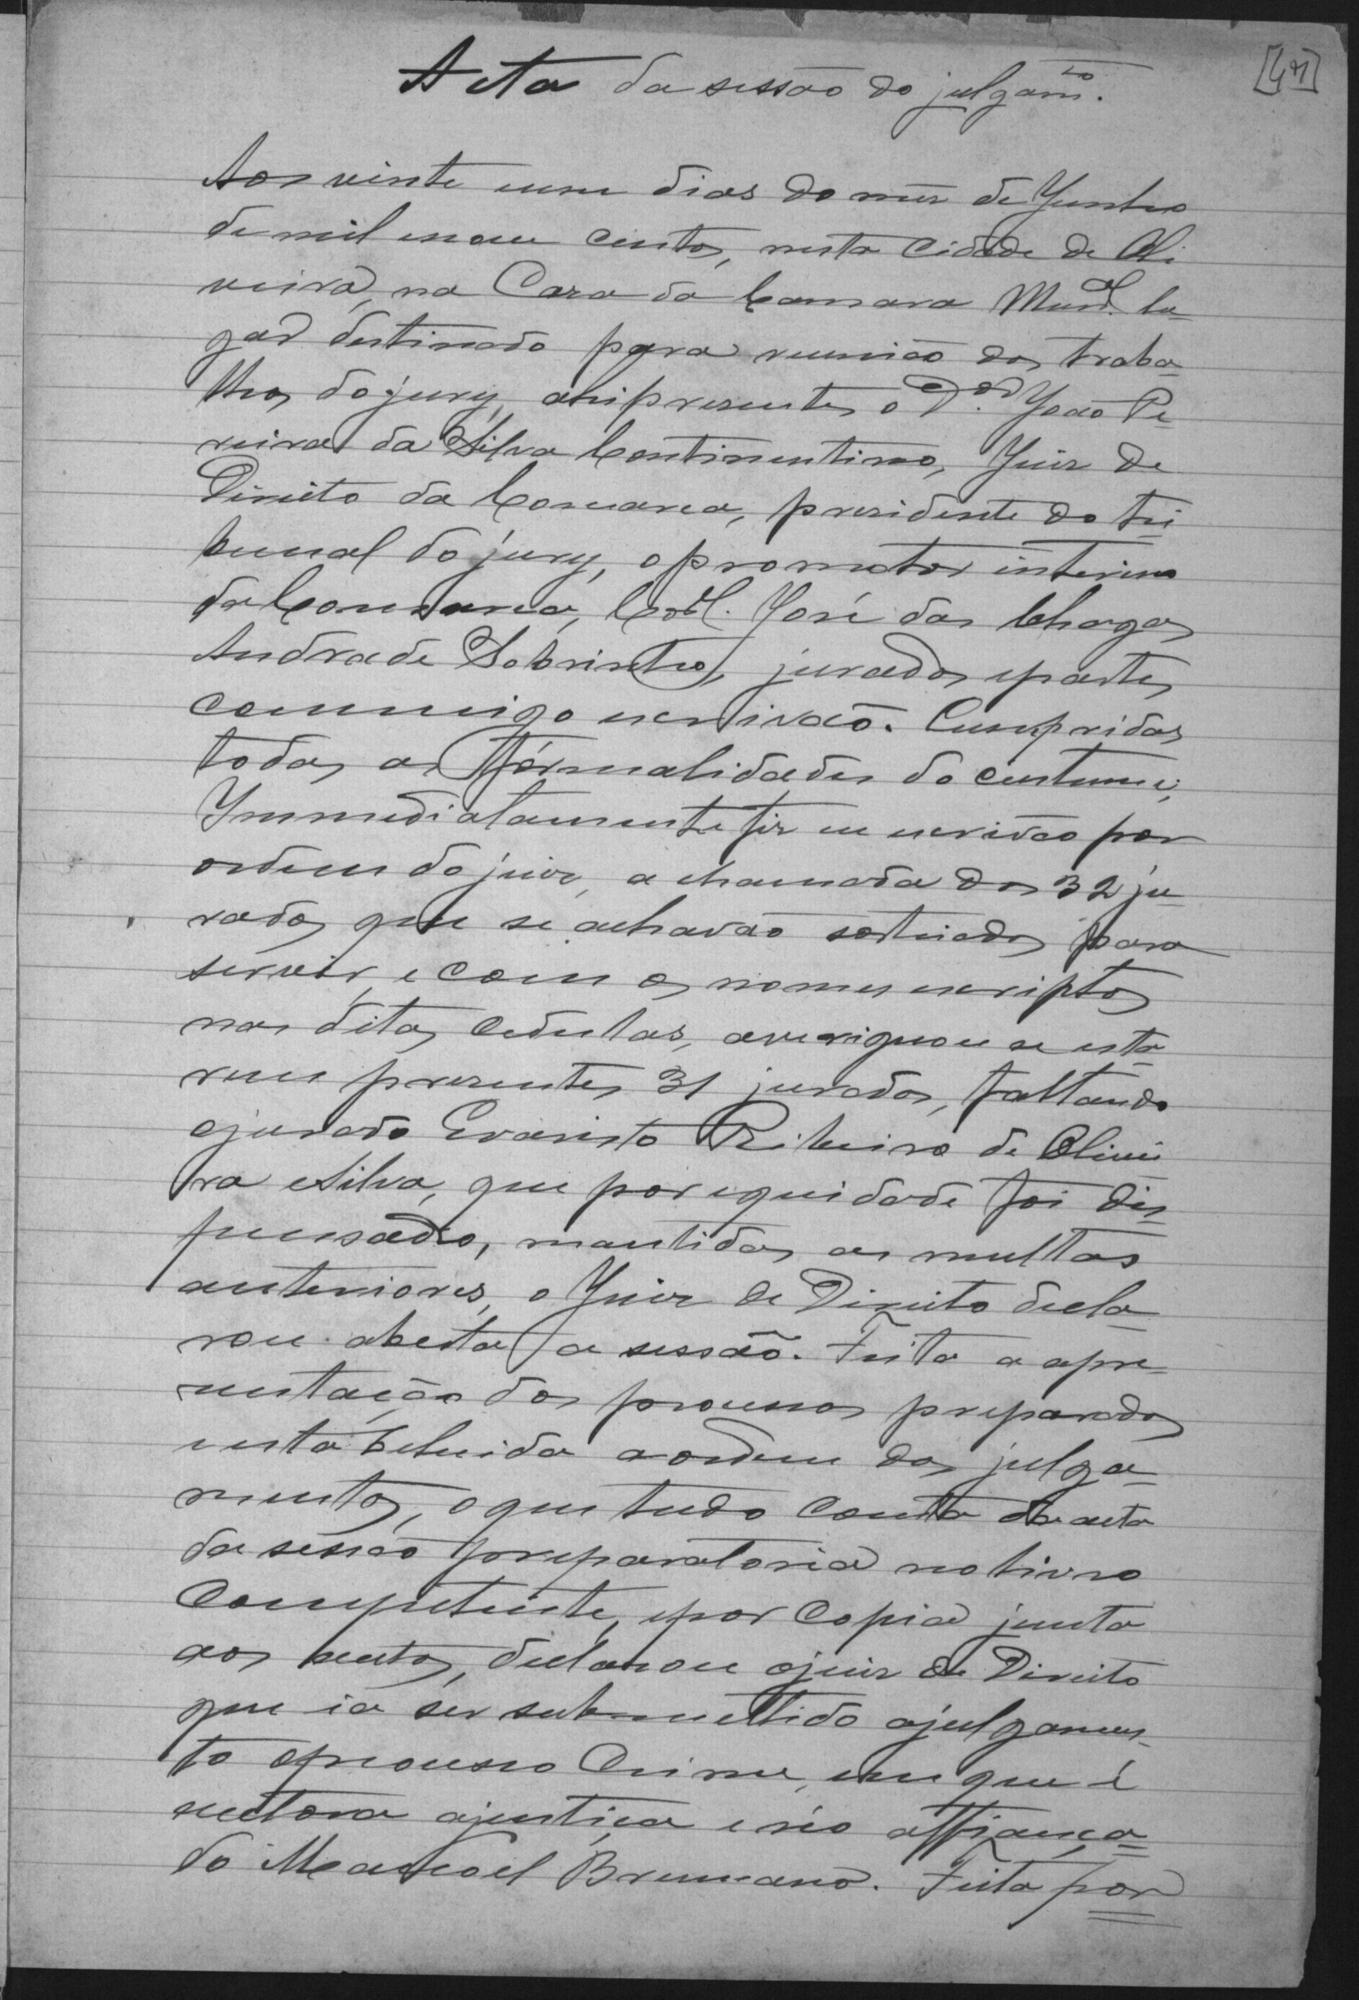 [41]
Acta da sessão do julgam.to
Aos vinte um dias do mez de Junho
de mil nove centos, nesta Cidade de Oli
veira, na Casa da Camara Mun.al lu-
gar destinado para reunião dos traba-
lhos do jury, ahi presentes o D.or João Pe
reira da Silva Continentino, Juiz de
Direito da Comarca, presidente do tri
bunal do jury, o promotor interino
da Comarca, Cor.el José das Chagas
Andrade Sobrinho, jurados e partes
commigo escrivaõ. Cumpridas
todas as formalidades do custume,
Immediatamente fiz eu escrivão por
ordem do juiz, a chamada dos 32 ju-
rados que se achavão sorteados para
servir, e com os nomes escriptos
nas ditas cedulas, averiguou se esta
rem presentes 31 jurados, faltando
o jurado Evaristo Ribeiro de Olivei
ra e Silva, que por equidade foi dis-
pensado, mantidas as multas
anteriores, o Juiz de Direito decla-
rou aberta a sessaõ. Feita a apre-
sentação dos processos preparados
e estabelecida a ordem dos julga-
mentos, o que tudo consta da acta
da sessão preparatoria no livro
Competente, e por copia junta
aos autos, declarou o juiz de Direito
que ia ser submettido a julgamen-
to o processo Crime, em que é
auctora a justiça e réo affiança-
do Manoel Brumano. Feita por